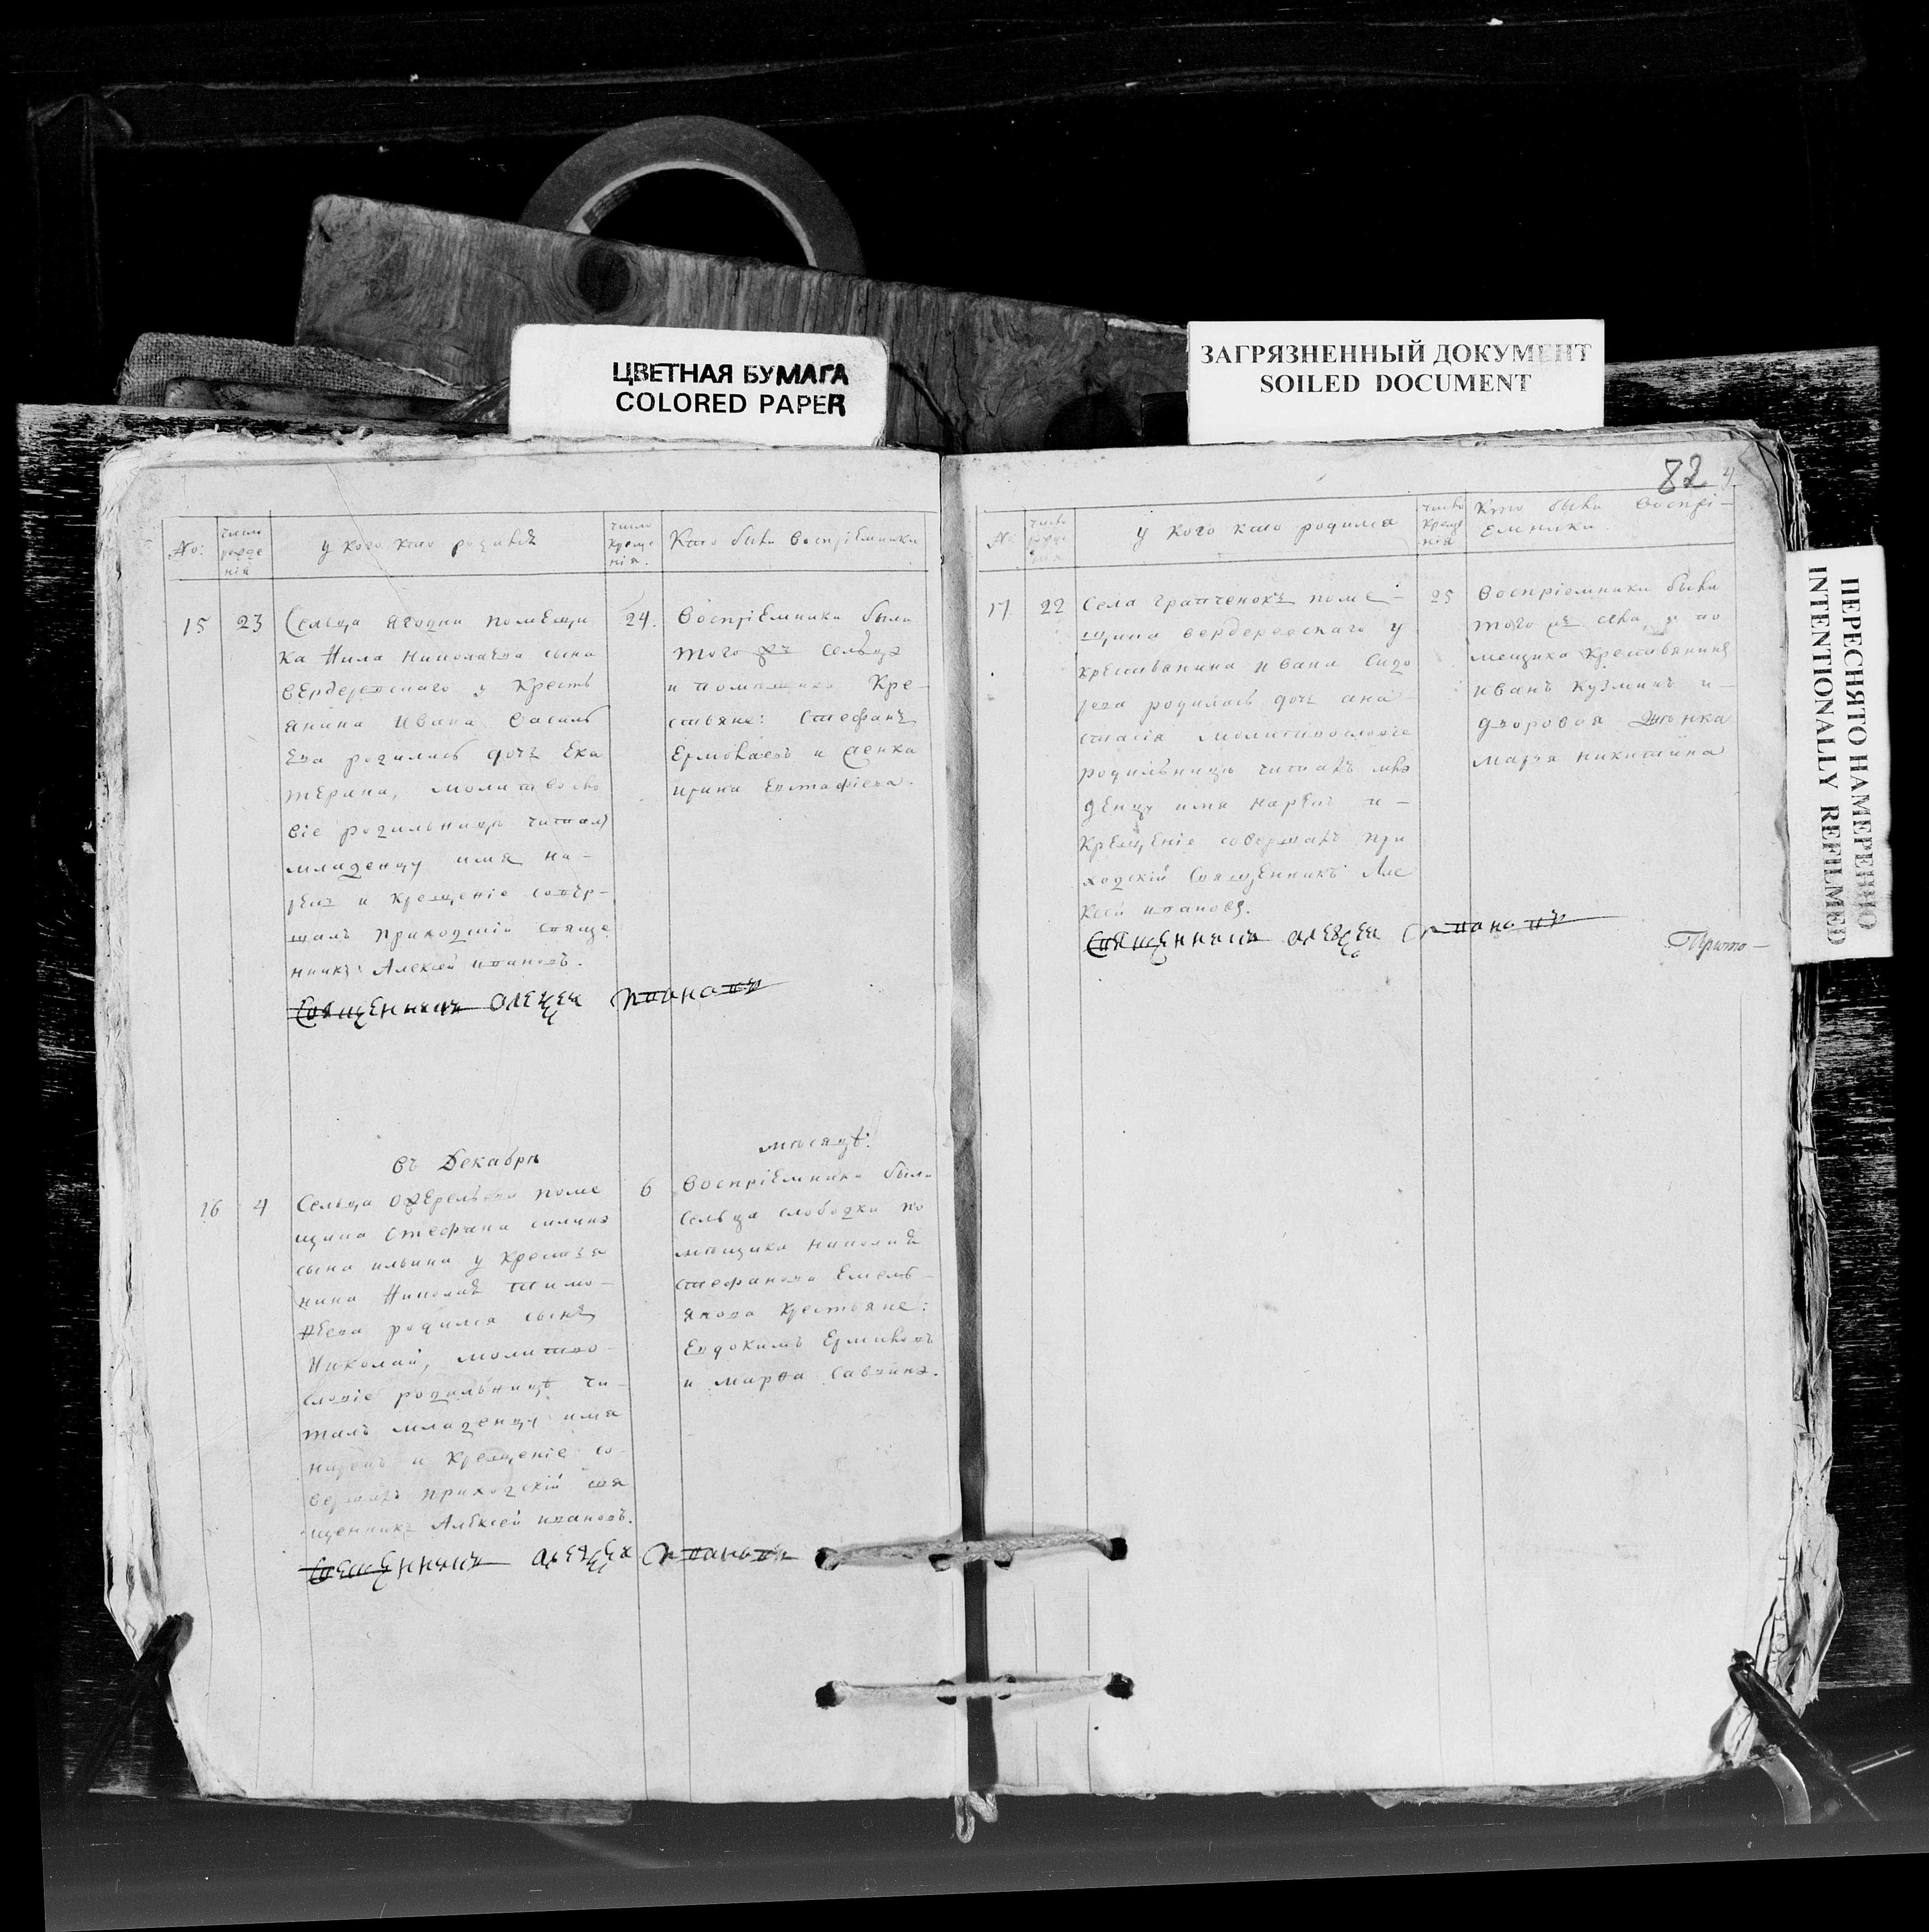 ЦВЕТНАЯ БУМАГА
COLORED PAPER
ЗАГРЯЗНЕННЫЙ ДОКУМЕНТ
SOILED DOCUMENT
ПЕРЕСНЯТО НАМЕРЕННО
INTENTIONALLY REFILMED
82
No:
число рожде нія
у кого кто родился
число креще нія.
Кто были воспріемники
15
23
Сельца Ягодни помещи
ка Нила Николаева сына
Вердеревскаго у Кресть
янина Ивана Василь
ева родилась дочь Ека
терина, молитвосло
віе родильницѣ читалъ
младенцу имя на-
рекъ и крещеніе совер-
шалъ приходскій свяще
нникъ Алексей Ивановъ.
24.
Воспріемники были
того жъ сельца
и помещика Кре-
стьяне: Стефанъ
Ермолаевъ и девка
Ирина Евстафіева.
Священникъ Алеѯей Ивановъ
въ Декабрѣ
мѣсяцѣ:
16
4
Сельца Ожерельева поме
щика Стефана Силина
сына Ильина у Крестья
нина Николая Тимо-
феева родился сынъ
Николай, молитво-
словіе родильницѣ чи-
талъ младенцу имя
нарекъ и Крещеніе со-
вершалъ приходскій свя
щенникъ Алексей Ивановъ.
6
Воспріемники были
Сельца слободки по
мещика Николая
Стефанова Емель-
янова Крестьяне:
Евдокимъ Ермиловъ
и Марфа Саввина.
Священникъ Алеѯей Ивановъ
No:
число рожде нія
у кого кто родился
число креще нія
Кто были воспрі-
емники
17
22
Села поме-
щика Вердеревскаго у
крестьянина Ивана Сидо
рова родилась дочь Ана
стасія молитвословіе
родильницѣ читалъ мла
денцу имя нарекъ и-
Крещеніе совершалъ при
ходскій Священникъ Але
ксей Ивановъ.
25
Воспріемники были
того же села, и по
мещика Крестьянинъ
Иванъ Кузминъ и-
дворовая женка
Марья Никитина
Священникъ Алеѯей Ивановъ